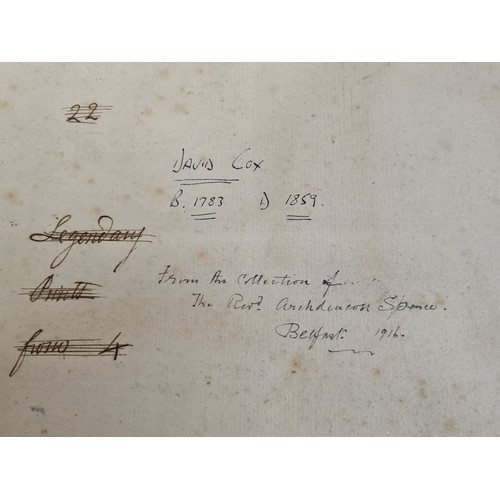 22
DAVID COX
B. 1783 D 1859.
Legendary
Prints
from 4
From the Collection of...
The Revd. Archdeacon Spence.
Belfast. 1916.